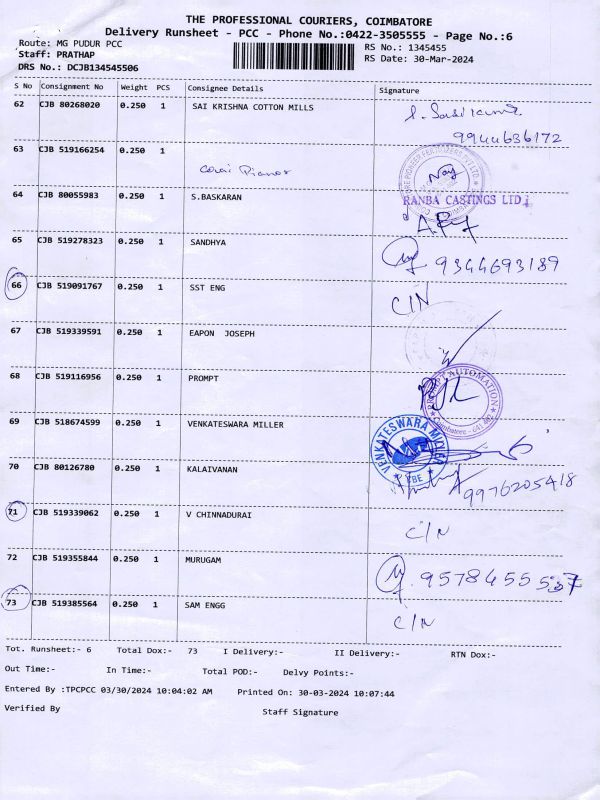 THE PROFESSIONAL COURIERS, COIMBATORE
Delivery Runsheet - PCC - Phone No.:0422-3505555 - Page No.:6
Route: MG PUDUR PCC
RS No.: 1345455
Staff: PRATHAP
RS Date: 30-Mar-2024
DRS No.: DCJB134545506
S No Consignment No Weight PCS Consignee Details Signature
62 CJB 80268020 0.250 1 SAI KRISHNA COTTON MILLS
9944636172
63 CJB 519166254 0.250 1
64 CJB 80055983 0.250 1 S.BASKARAN RANBA CASTINGS LTD
65 CJB 519278323 0.250 1 SANDHYA 9344693189
66 CJB 519091767 0.250 1 SST ENG C/N
67 CJB 519339591 0.250 1 EAPON JOSEPH
68 CJB 519116956 0.250 1 PROMPT AUTOMATION
69 CJB 518674599 0.250 1 VENKATESWARA MILLER VENKATESWARA
70 CJB 80126780 0.250 1 KALAIVANAN 9976205418
71 CJB 519339062 0.250 1 V CHINNADURAI C/N
72 CJB 519355844 0.250 1 MURUGAM
73 CJB 519385564 0.250 1 SAM ENGG C/N
Tot. Runsheet:- 6 Total Dox:- 73 I Delivery:- II Delivery:- RTN Dox:-
Out Time:- In Time:- Total POD:- Delvy Points:-
Entered By :TPCPCC 03/30/2024 10:04:02 AM Printed On: 30-03-2024 10:07:44
Verified By Staff Signature